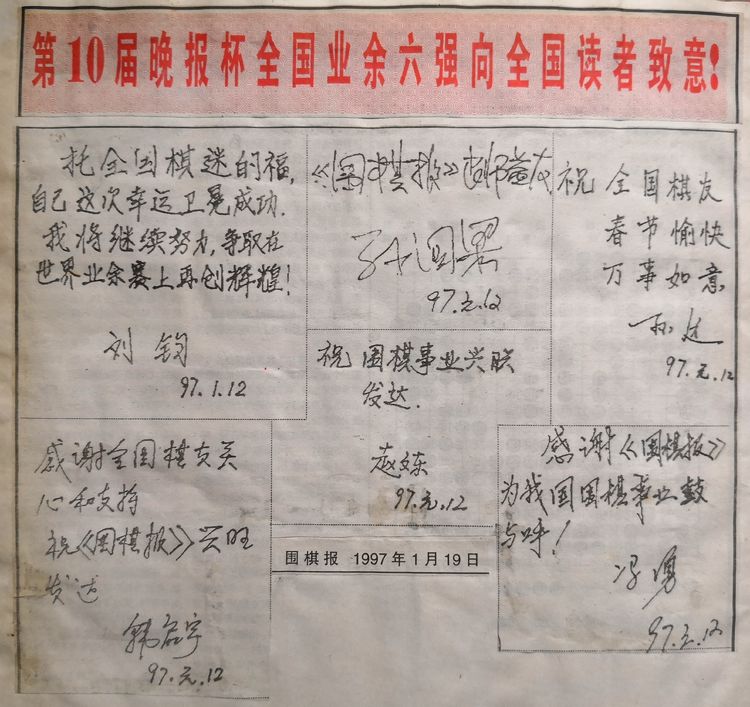 第10届晚报杯全国业余六强向全国读者致意！
托全国棋迷的福,
自己这次幸运卫冕成功.
我将继续努力,争取在
世界业余赛上再创辉煌!
刘钧
97.1.12
《围棋报》
97.元.12
祝全国棋友
春节愉快
万事如意
孙
97.元.12
祝围棋事业兴联
发达.
赵栋
97.元.12
感谢全国棋友关
心和支持
祝《围棋报》兴旺
发达
韩启宇
97.元.12
感谢《围棋报》
为我国围棋事业鼓
与呼!
冯勇
97.元.12
围棋报 1997年1月19日